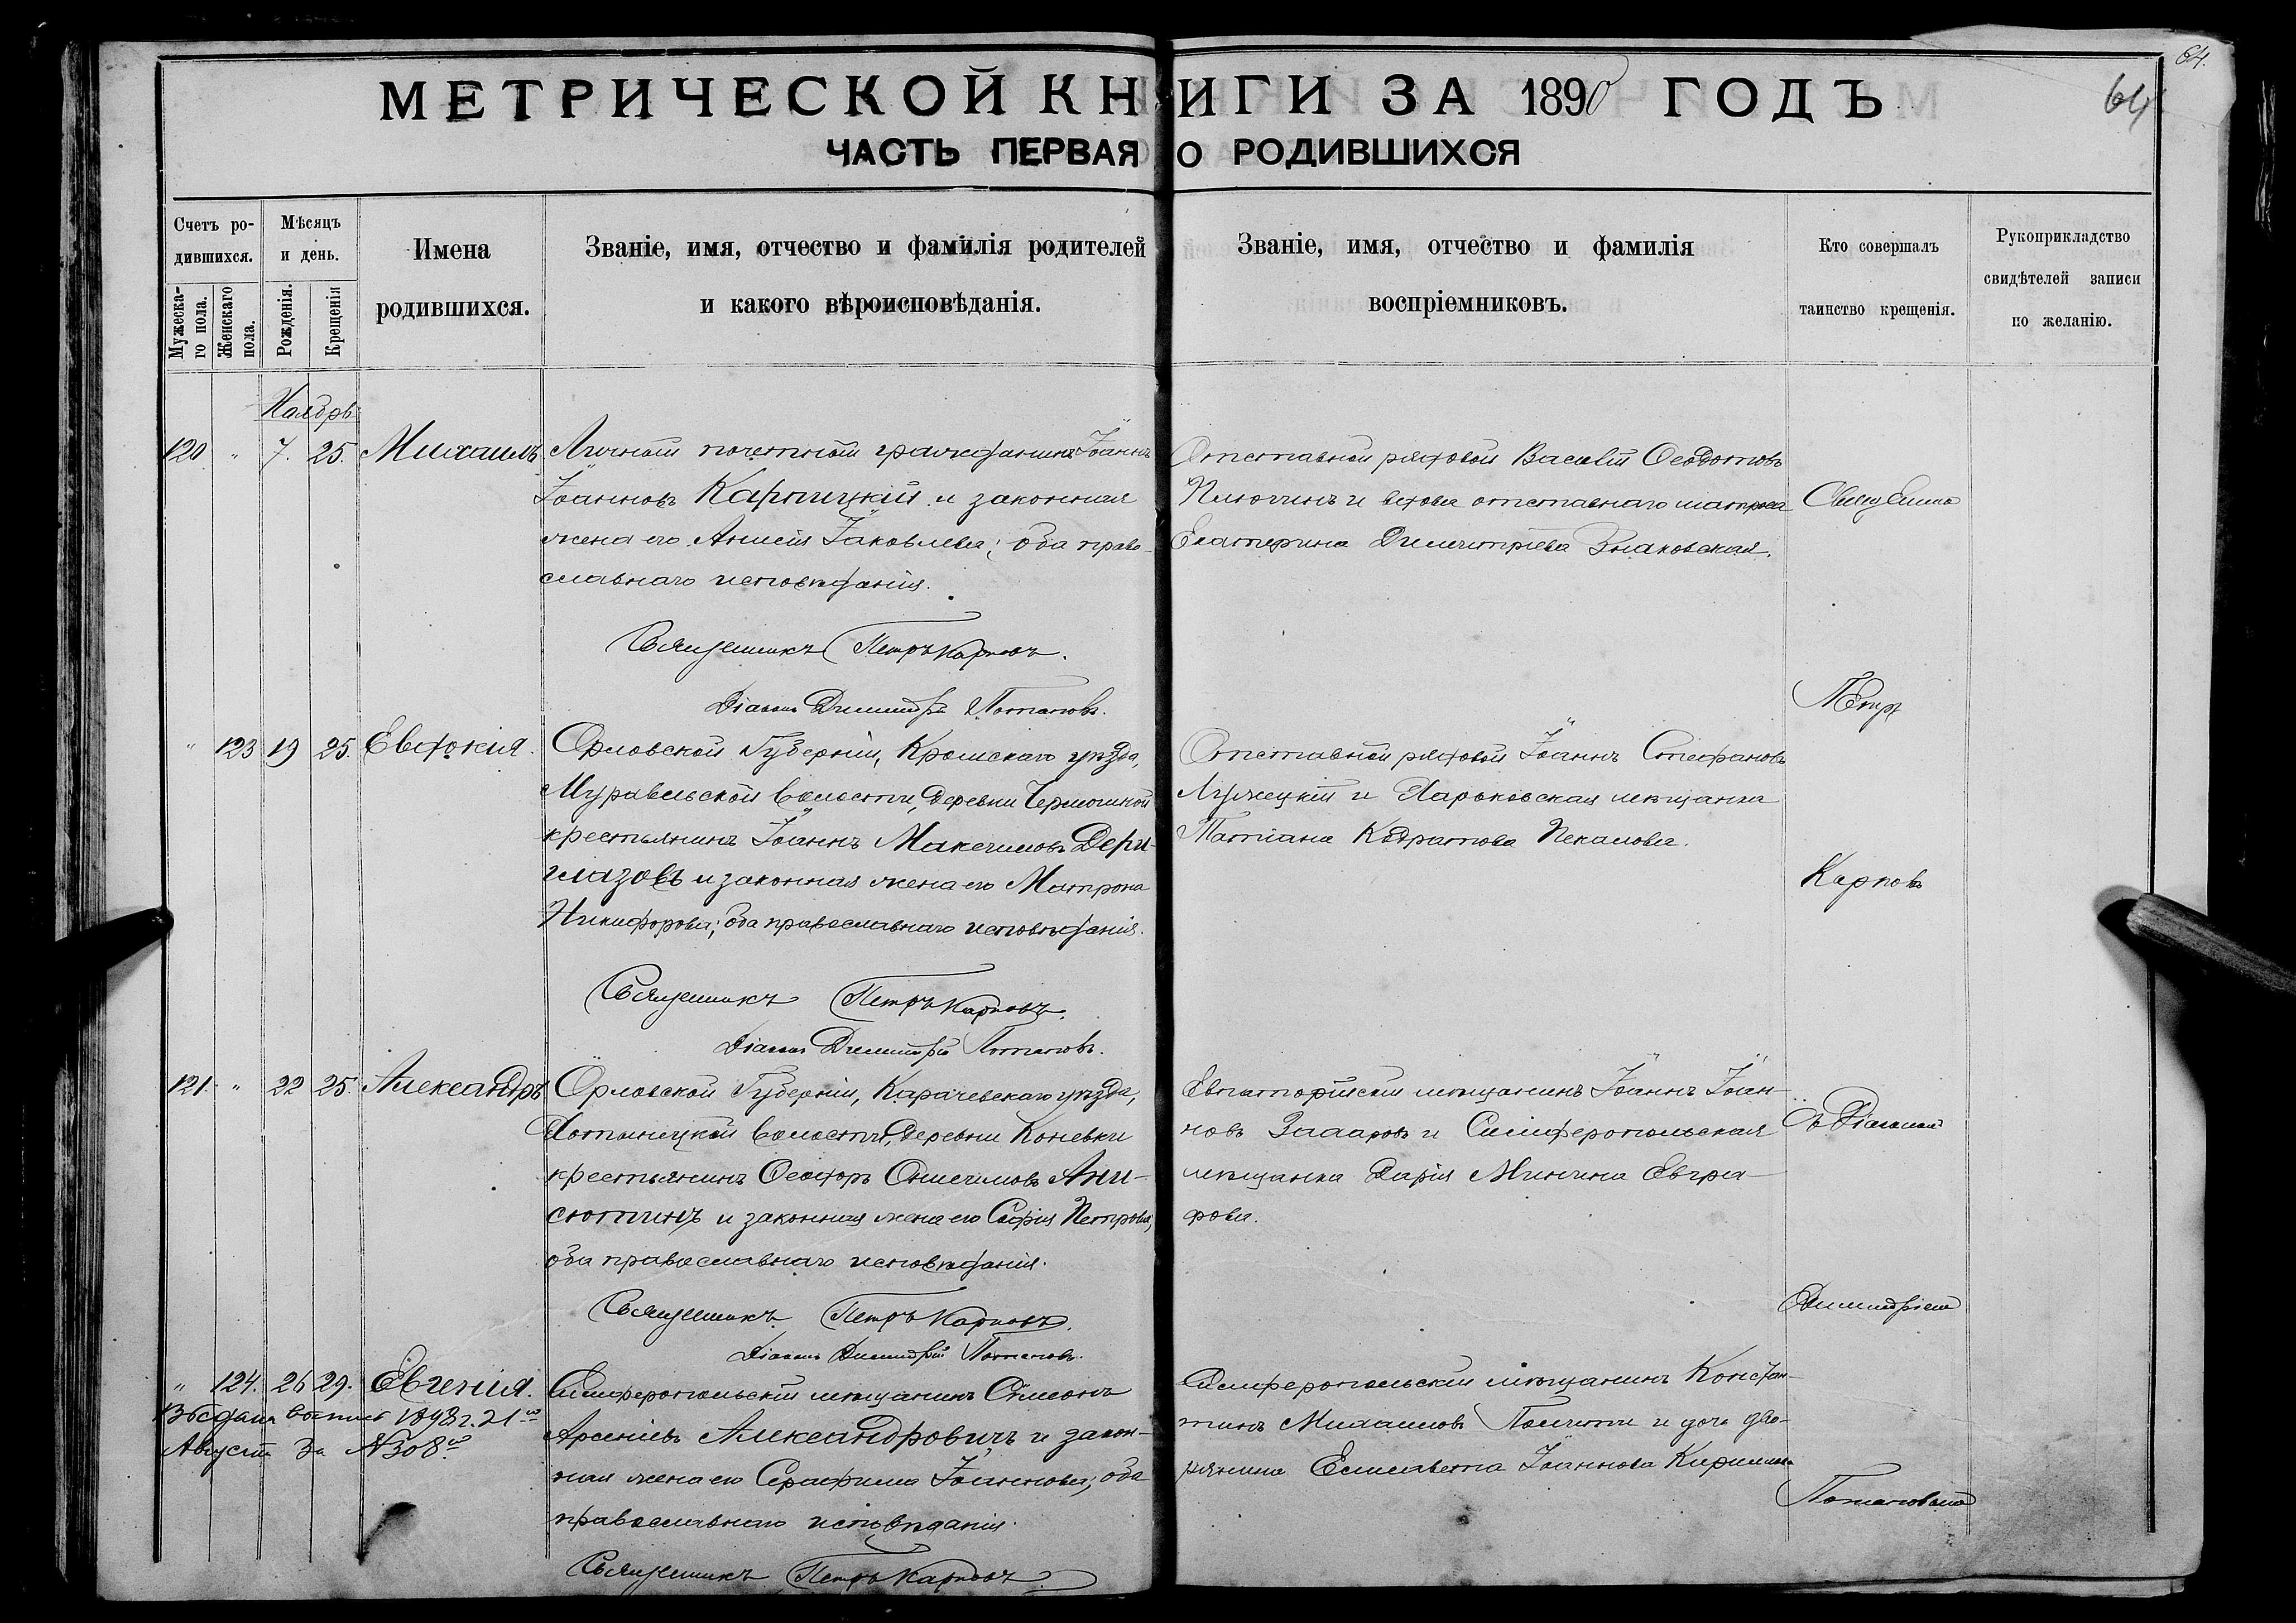 64.
64
МЕТРИЧЕСКОЙ КНИГИ ЗА 1890 ГОДЪ
ЧАСТЬ ПЕРВАЯ О РОДИВШИХСЯ
Счетъ ро-
дившихся.
Мужеска-
го пола.
Женскаго
пола.
Мѣсяцъ
и день.
Рожденія.
Крещенія
Имена
родившихся.
Званіе, имя, отчество и фамилія родителей
и какого вѣроисповѣданія.
Званіе, имя, отчество и фамилія
воспріемниковъ.
Кто совершалъ
таинство крещенія.
Рукоприкладство
свидѣтелей записи
по желанію.
Ноябрь
120 " 7. 25. Михаилъ
Личный почетный гражданинъ Іоаннъ
Іоанновъ Карпицкій и законная
жена его Анисія Іаковлева; оба право-
славнаго исповѣданія.
Священникъ Петръ Карповъ.
Діаконъ Димитрій Потаповъ.
Отставной рядовой Василій Ѳеодотовъ
и вдова отставнаго матроса
Екатерина Димитріева Знаковская.
" 123 19 25. Евдокія.
Орловской Губерніи, Кромскаго уѣзда,
Муравльской волости, деревни
крестьянинъ Іоаннъ Максимовъ Дери-
глазовъ и законная жена его Матрона
Никифорова; оба православнаго исповѣданія.
Священникъ Петръ Карповъ.
Діаконъ Димитрій Потаповъ.
Отставной рядовой Іоаннъ Стефановъ
Лужецкій и Харьковская мѣщанка
Татіана Кодратова Пекалова.
121. " 22 25 Александръ
Орловской Губерніи, Карачевскаго уѣзда,
волости, деревни Коневки
крестьянинъ Ѳеодоръ Онисимовъ Ани-
сютинъ и законная жена его Софія Петрова,
оба православнаго исповѣданія.
Священникъ Петръ Карповъ.
Діаконъ Димитрій Потаповъ.
Евпаторійскій мѣщанинъ Іоаннъ Іоан-
новъ Захаровъ и Симферопольская
мѣщанка Дарія Минина Евгра-
фова.
" 124. 26 29. Евгенія.
Симферопольскій мѣщанинъ Сімеонъ
Арсеніевъ Александровичъ и закон-
ная жена его Серафима Іоаннова; оба
православнаго исповѣданія.
Священникъ Петръ Карповъ.
Симферопольскій мѣщанинъ Констан-
тинъ Михаиловъ и дочь дво-
рянина Елисавета Іоаннова
Петръ
Карповъ
съ Діакономъ
Димитріемъ
Потаповымъ
Августа за №308